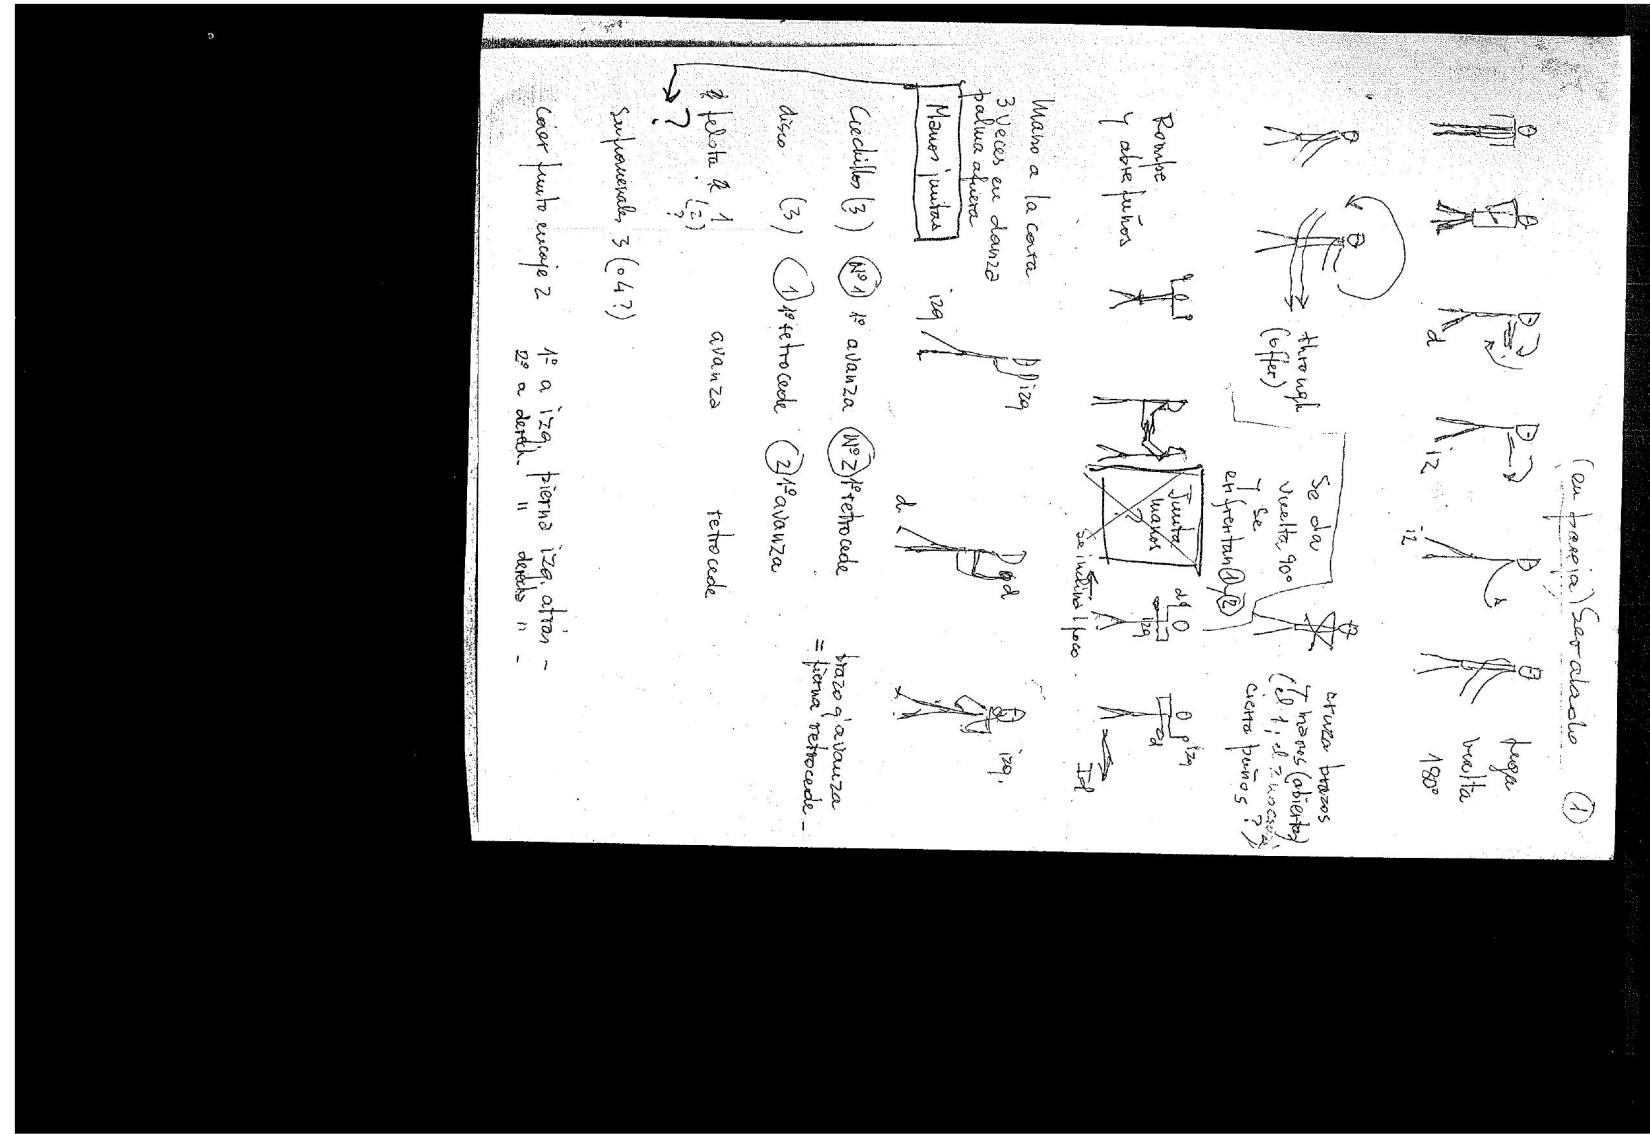 (en pareja) Ser alado 1
d
iz
iz
luego
vuelta
180°
through
(offer)
Se da
vuelta 90°
y se
enfrentan 1 y 2
cruza brazos
y manos (abiertas)
(el 1, el 2
cierra puños?)
Rompe
y abre puños
Junta
manos
?
se inclina 1 poco
izq
d
izq
Id
Mano a la cara
3 veces en danza
palma afuera
Manos juntas
izq
izq
d
d
izq.
Cuchillos (3) Nº1 1º avanza Nº2 1º retrocede
brazo q' avanza
= pierna retrocede -
disco (3) 1 1º retrocede 2 1º avanza
pelota 1
(2)
?
?
avanza retrocede
3 (o 4?)
punto encaje 2 1º a izq. pierna izq. atrás -
2º a derech. " derecha " -